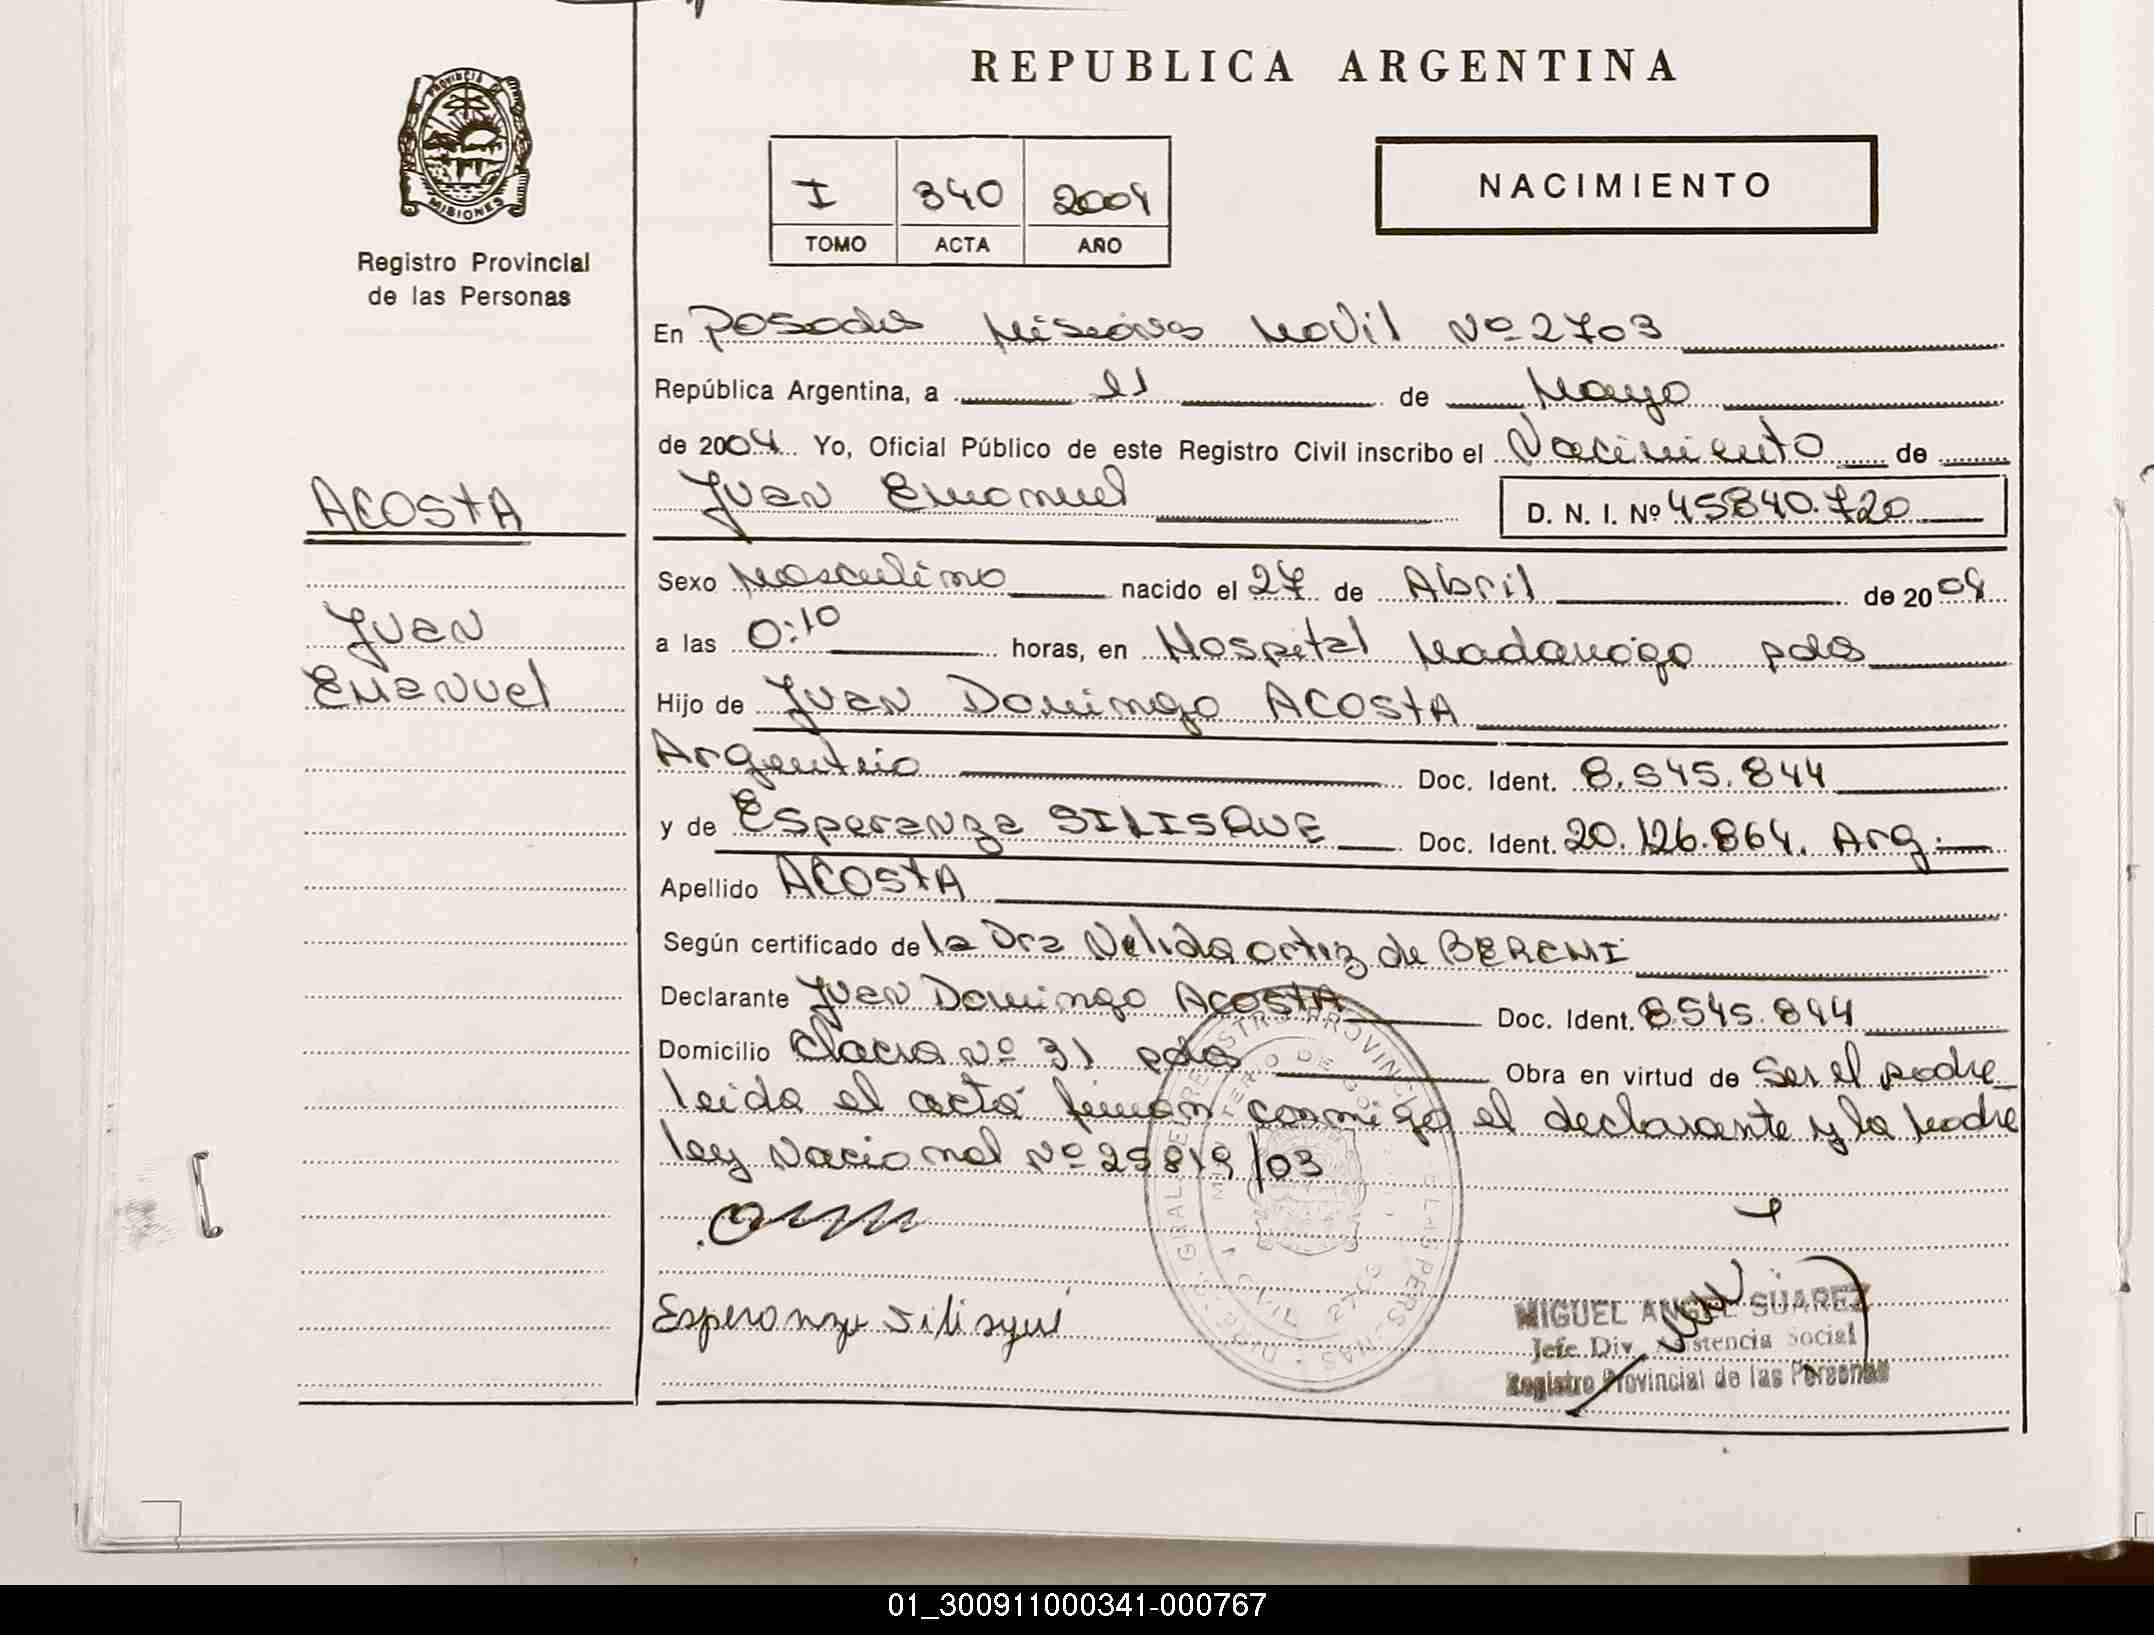 REPUBLICA ARGENTINA
PROVINCIA DE
MISIONES
Registro Provincial
de las Personas
I 340 2004
TOMO ACTA AÑO
NACIMIENTO
En Posadas Misiones Movil Nº 2703
República Argentina, a 11 de Mayo
de 2004 Yo, Oficial Público de este Registro Civil inscribo el Nacimiento de
Juan Emanuel D. N. I. Nº 45840.720
ACOSTA
Juan
Emanuel
Sexo Masculino nacido el 27 de Abril de 2004
a las 0:10 horas, en Hospital Madariaga pdas
Hijo de Juan Domingo ACOSTA
Argentino Doc. Ident. 8.545.844
y de Esperanza SILISQUE Doc. Ident. 20.126.864. Arg.
Apellido ACOSTA
Según certificado de la Dra Nelida Ortiz de
Declarante Juan Domingo ACOSTA Doc. Ident. 8.545.844
Domicilio Chacra Nº 31 pdas Obra en virtud de Ser el padre
leida el acta firman conmigo el declarante y la Madre
ley Nacional Nº 25819/03
Esperanza Silisqui
MIGUEL ANGEL SUAREZ
Jefe Div. Asistencia Social
Registro Provincial de las Personas
01_300911000341-000767